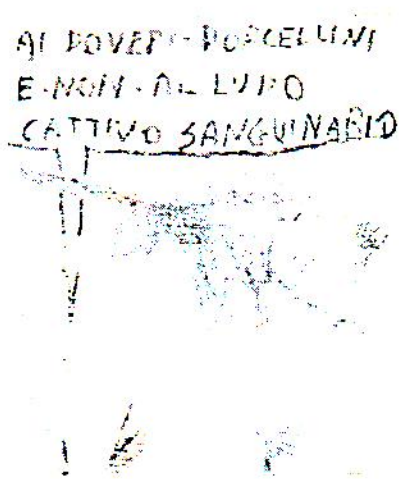 AI POVERI-PORCELLINI
E-NON-AL LUPO
CATTIVO SANGUINARIO